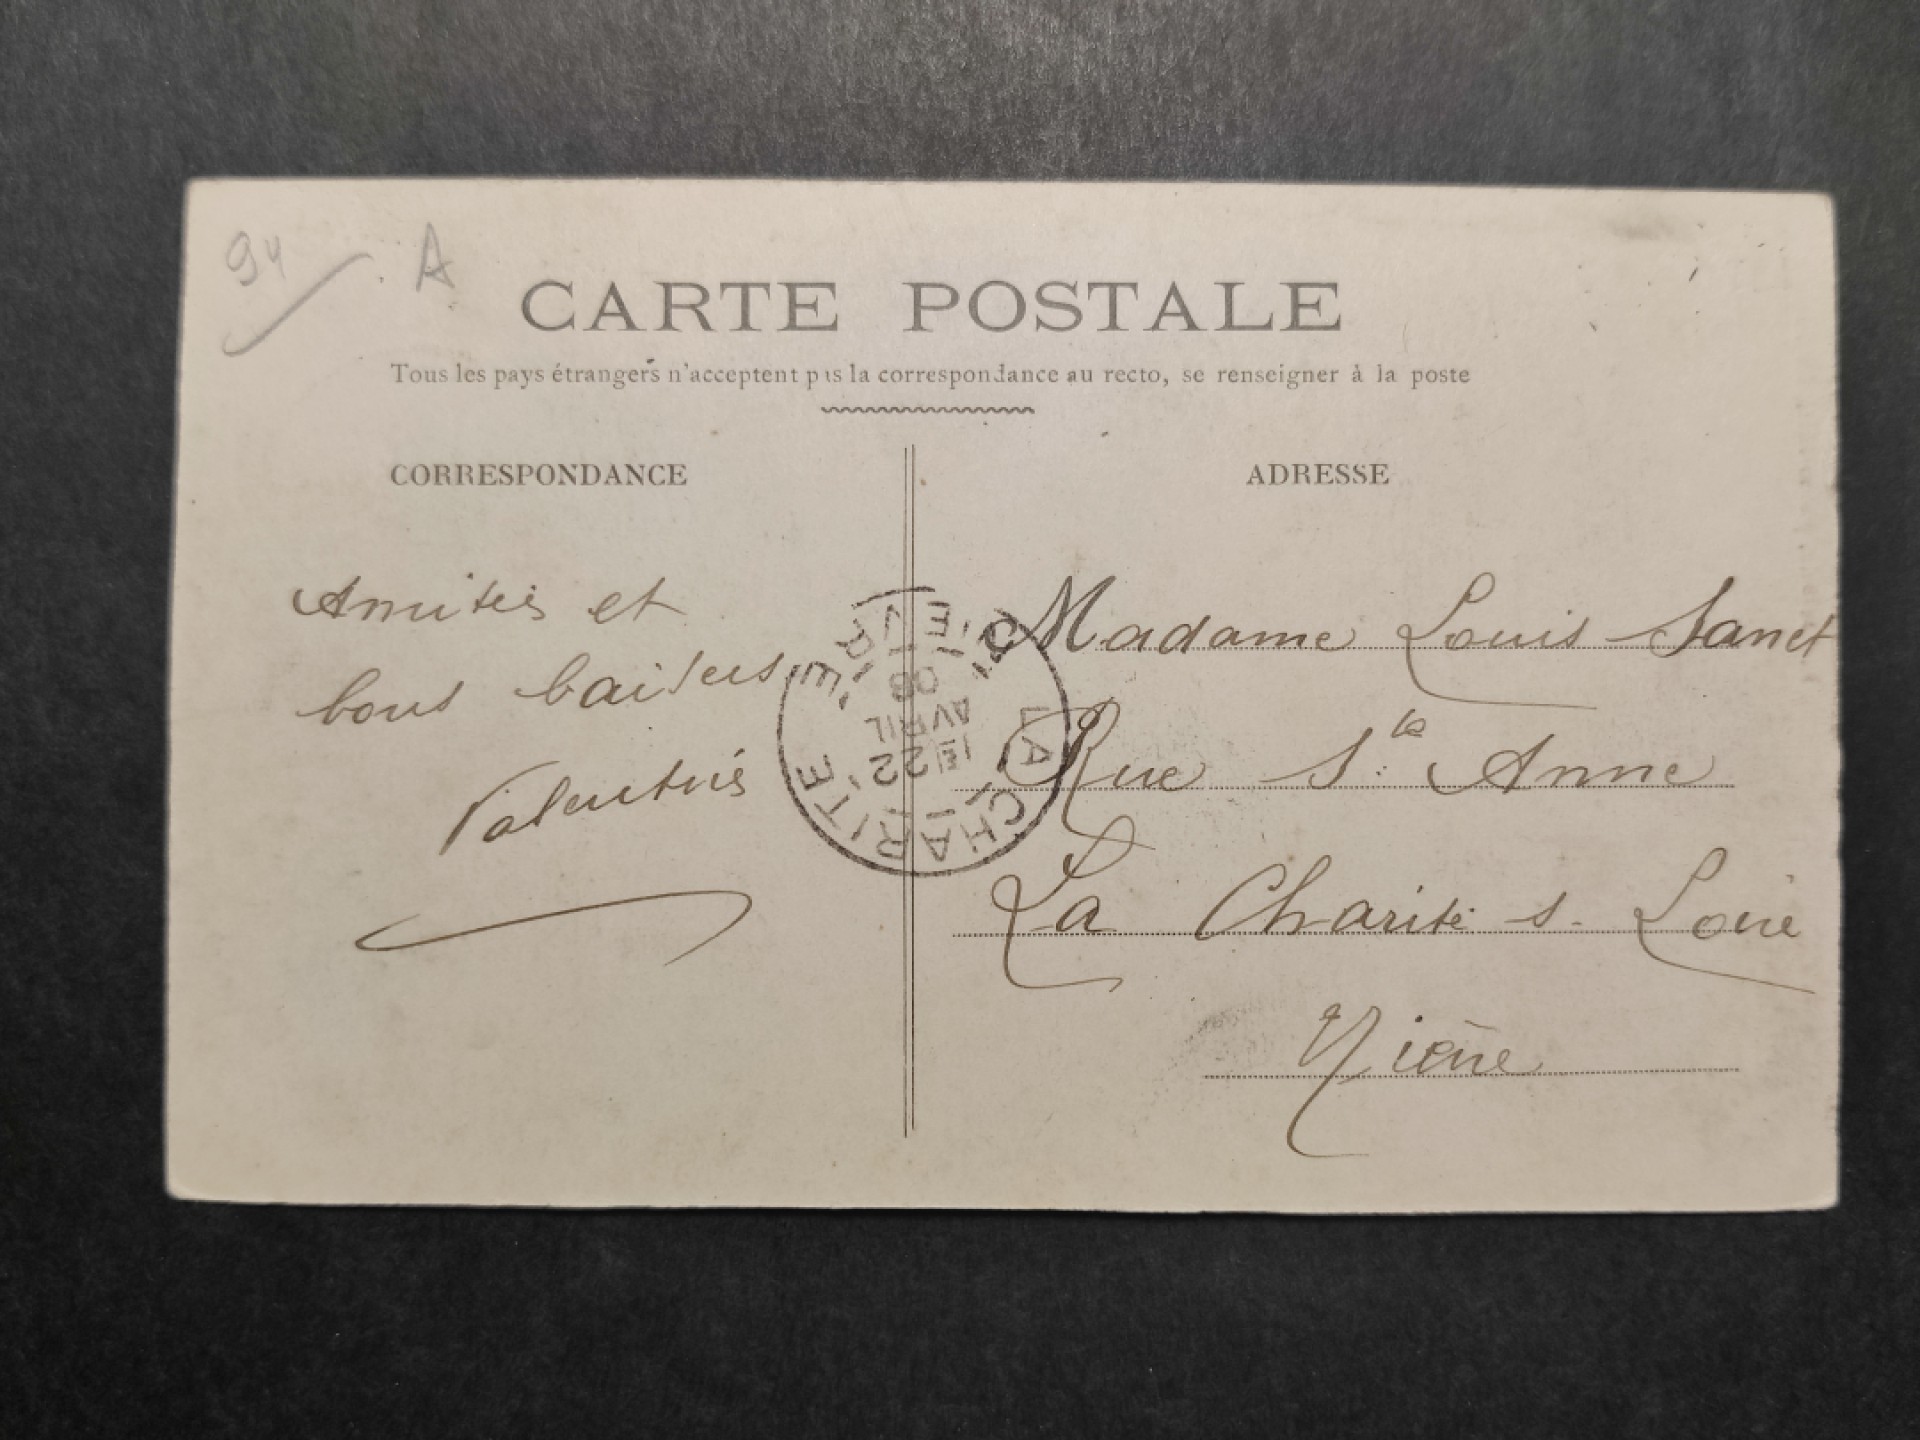 94 A
CARTE POSTALE
Tous les pays étrangers n'acceptent pas la correspondance au recto, se renseigner à la poste
CORRESPONDANCE
Amitiés et
bons baisers
ADRESSE
Madame Louis
Rue Ste Anne
La Charité s. Loire
Nièvre
LA CHARITE
NIEVRE
1E
22
AVRIL
08